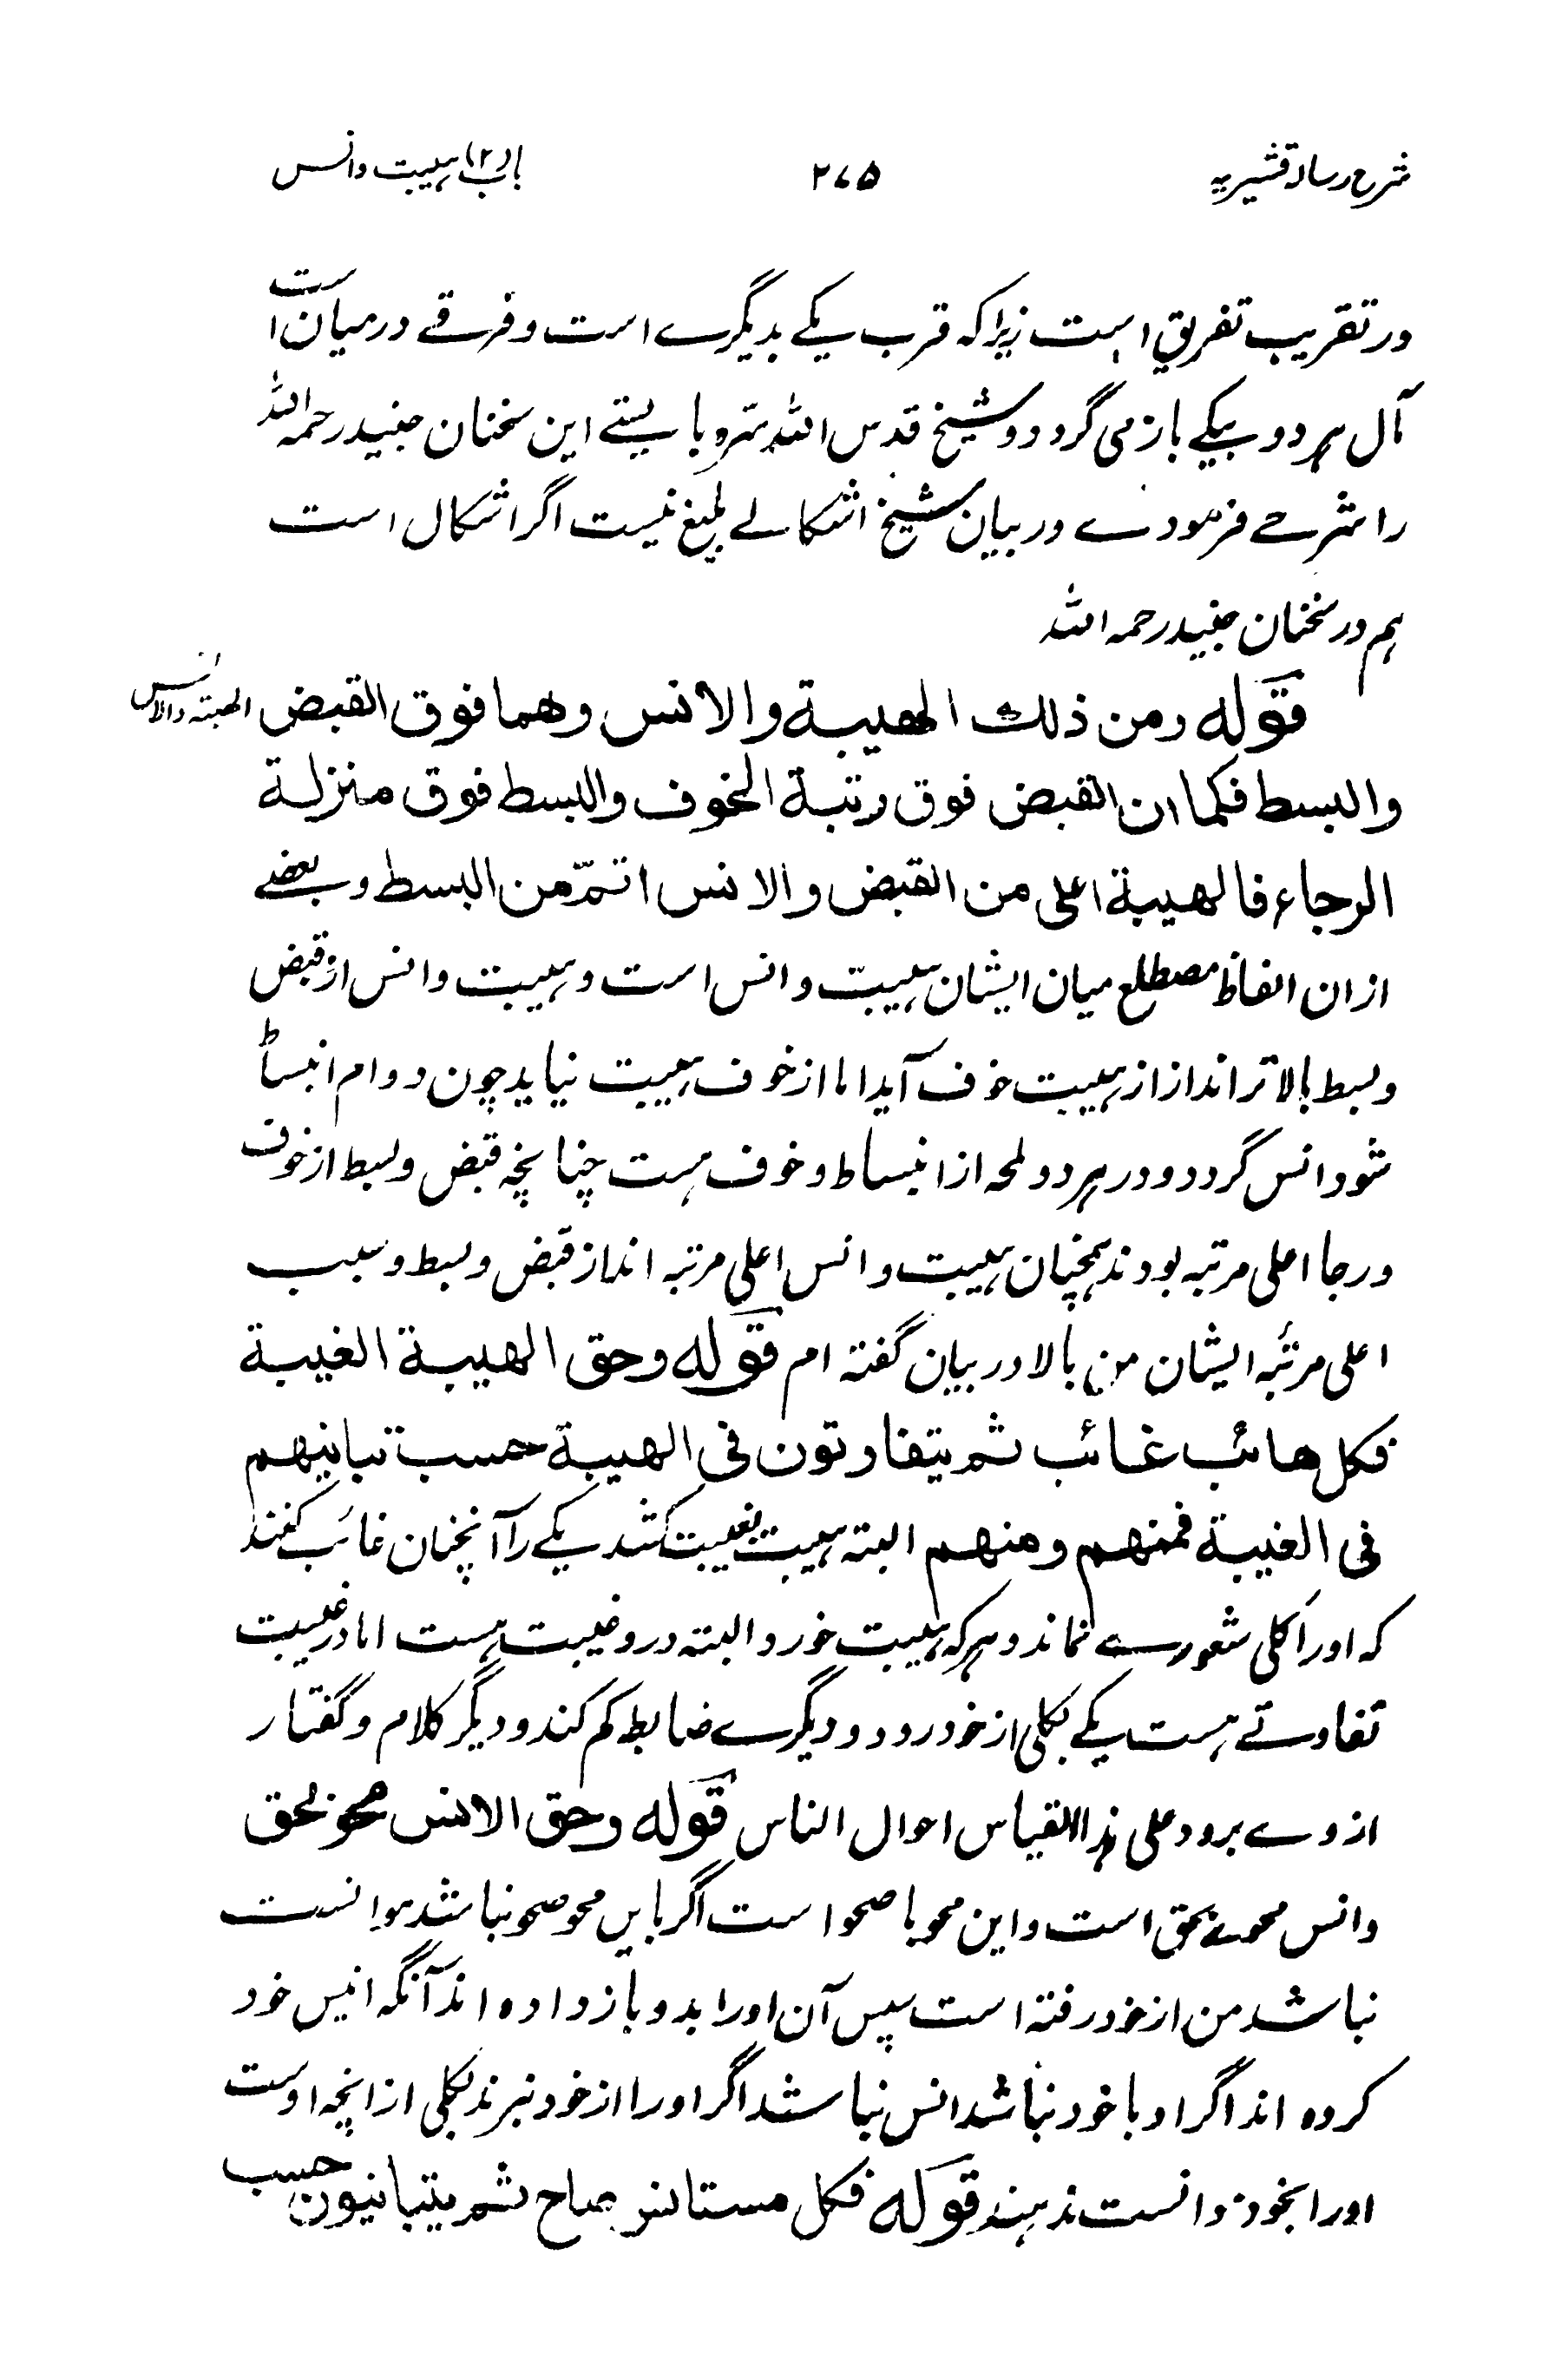 شرح رسالہ قشیریہ ۲۷۵ باب (۲) ہیبت و انس
در تقریب تفریق است زیرا کہ قرب یکے بدیگرے است و فرقے درمیان است
مآل ہر دو بیکے باز می گردد و شیخ قدس اللہ سرہ بایستے این سخنان جنید رحمہ اللہ
را شرحے فرمودے در بیان شیخ اشکالے بلیغ نیست اگر اشکال است
ہم در سخنان جنید رحمہ اللہ
قوله ومن ذلك الهيبة والانس وهما فوق القبض الهیبتہ والانس
والبسط فكما ان القبض فوق رتبة الخوف والبسط فوق منزلة
الرجاء فالهيبة اعلى من القبض والانس اتمّ من البسط و بعضے
ازان الفاظ مصطلح میان ایشان ہیبت و انس است و ہیبت و انس از قبض
و بسط بالاتر اند از ہیبت خوف آید اما از خوف ہیبت نیاید چون دوام انبساط
شود انس گردد و در ہر دو لمحہ از انبساط و خوف ہست چنانچہ قبض و بسط از خوف
و رجا اعلی مرتبہ بودند ہمچنان ہیبت و انس اعلی مرتبہ اند از قبض و بسط و سبب
اعلی مرتبۂ ایشان من بالا در بیان گفتہ ام قوله وحق الهيبة الغيبة
فكل هائب غائب ثم يتفاوتون فى الهيبة حسب تباينهم
فى الغيبة فمنهم ومنهم البتہ ہیبت بغیبت کشد یکے را آنچنان غائب کنند
کہ اورا کلی شعورے نماند و ہر کہ ہیبت خورد البتہ درو غیبت ہست اما در غیبت
تفاوتے ہست یکے بکلی از خود رود و دیگرے ضابطہ کم کند و دیگر کلام و گفتار
از وے برود علی ہذا القیاس احوال الناس قوله وحق الانس محو بحق
و انس محوے بحق است و این محو با صحو است اگر بایں محو صحو نباشد موانست
نباشد من از خود رفتہ است سپس آن اورا بدو باز دادہ اند آنگہ انیس خود
کردہ اند اگر او با خود نباشد انس نباشد اگر اورا از خود نبرند بکلی از انچہ اوست
اورا بخود موانست ندہند قوله فكل مستانس صاح ثم يتباينون حسب